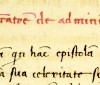 tratre de admini
qn hac epistola
sua celeritate se